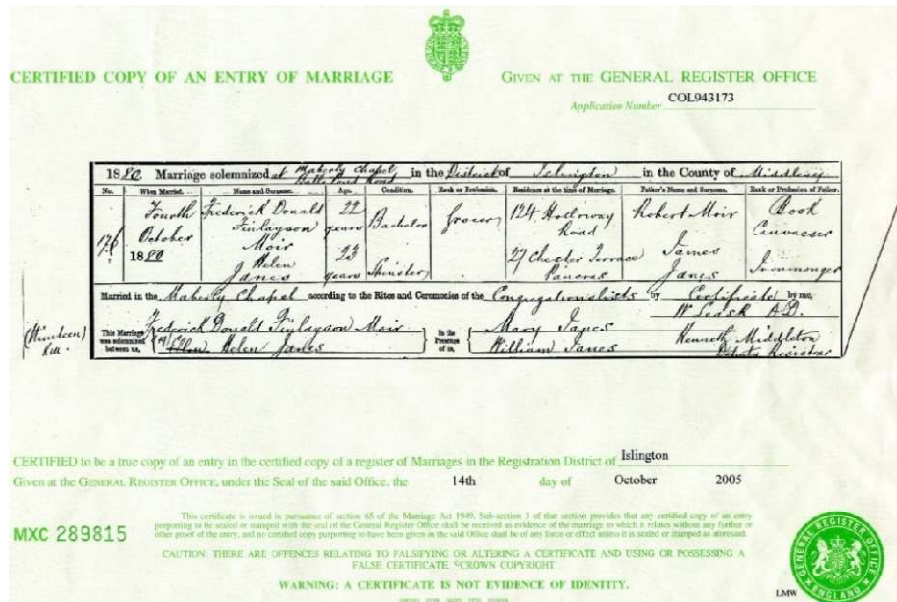 CERTIFIED COPY OF AN ENTRY OF MARRIAGE
GIVEN AT THE GENERAL REGISTER OFFICE
Application Number COL943173
1880 Marriage solemnized at Maberly Chapel Balls Pond Road in the District of Islington in the County of Middlesex
No. When Married. Name and Surname. Age. Condition. Rank or Profession. Residence at the time of Marriage. Father's Name and Surname. Rank or Profession of Father.
176 Fourth October 1880 Frederick Donald Finlayson Moir 22 years Bachelor Grocer 124 Holloway Road Robert Moir Book Canvasser
Helen Janes 23 years Spinster 27 Chester Terrace Pancras James Janes Ironmonger
Married in the Maberly Chapel according to the Rites and Ceremonies of the Congregationalists by Certificate by me,
W Leask
This Marriage was solemnized between us, Frederick Donald Finlayson Moir
Helen Janes
In the Presence of us, Mary Janes
William Janes
Kenneth Middleton
Registrar
CERTIFIED to be a true copy of an entry in the certified copy of a register of Marriages in the Registration District of Islington
Given at the GENERAL REGISTER OFFICE, under the Seal of the said Office, the 14th day of October 2005
MXC 289815
This certificate is issued in pursuance of section 65 of the Marriage Act 1949. Sub-section 3 of that section provides that any certified copy of an entry
purporting to be sealed or stamped with the seal of the General Register Office shall be received as evidence of the marriage to which it relates without any further or
other proof of the entry, and no certified copy purporting to have been given in the said Office shall be of any force or effect unless it is sealed or stamped as aforesaid.
CAUTION: THERE ARE OFFENCES RELATING TO FALSIFYING OR ALTERING A CERTIFICATE AND USING OR POSSESSING A
FALSE CERTIFICATE. ©CROWN COPYRIGHT
WARNING: A CERTIFICATE IS NOT EVIDENCE OF IDENTITY.
GENERAL REGISTER OFFICE
ENGLAND
LMW